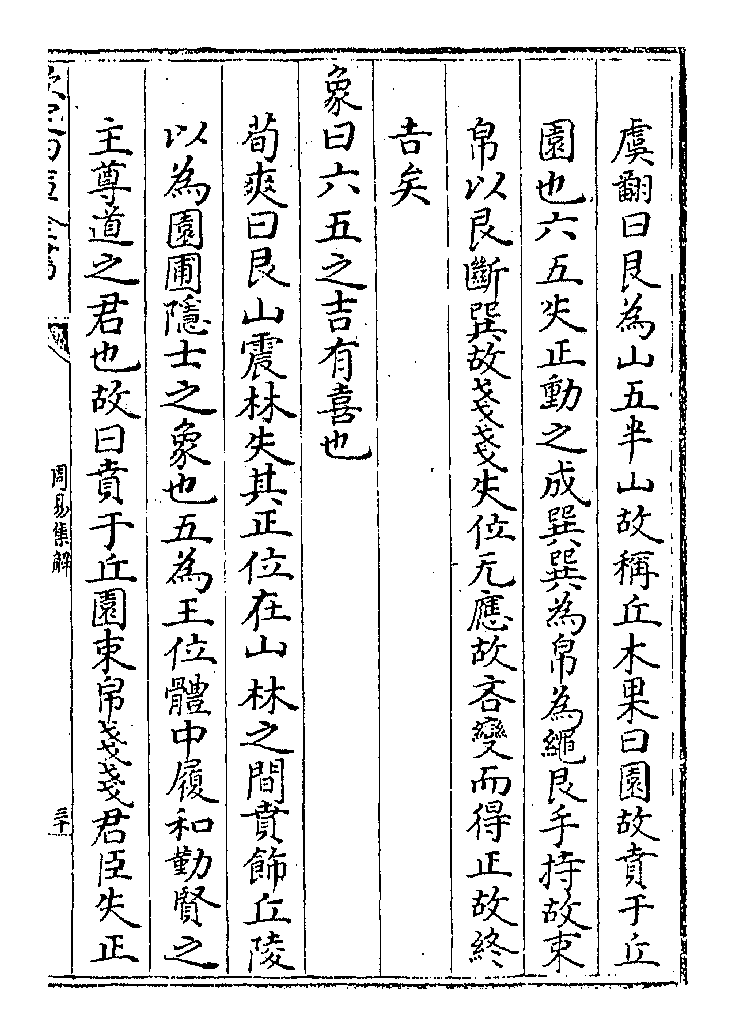 虞翻曰艮為山五半山故稱丘木果曰園故賁于丘
園也六五失正動之成巽巽為帛為繩艮手持故束
帛以艮斷巽故戔戔失位无應故吝變而得正故終
吉矣
象曰六五之吉有喜也
荀爽曰艮山震林失其正位在山林之間賁飾丘陵
以為園圃隱士之象也五為王位體中履和勤賢之
主尊道之君也故曰賁于丘園束帛戔戔君臣失正
周易集解
三十